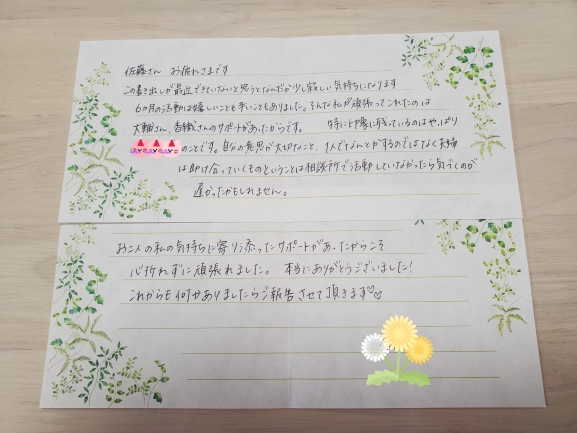 佐藤さん お疲れさまです
この書き出しが最近できていないと思うとなんだか少し寂しい気持ちになります
6ヵ月の活動は嬉しいことも辛いこともありました。そんな私が頑張ってこれたのは
大輔さん、香織さんのサポートがあったからです。 特に印象に残っているのはやっぱり
のことです。自分の意思が大切なこと、1人でなんとかするのではなく夫婦
は助け合っていくものということは相談所で活動していなかったら気づくのが
遅かったかもしれません。
お二人の私の気持ちに寄り添ったサポートがあったからこそ
心折れずに頑張れました。 本当にありがとうございました!
これからも何かありましたらご報告させて頂きます♡♡